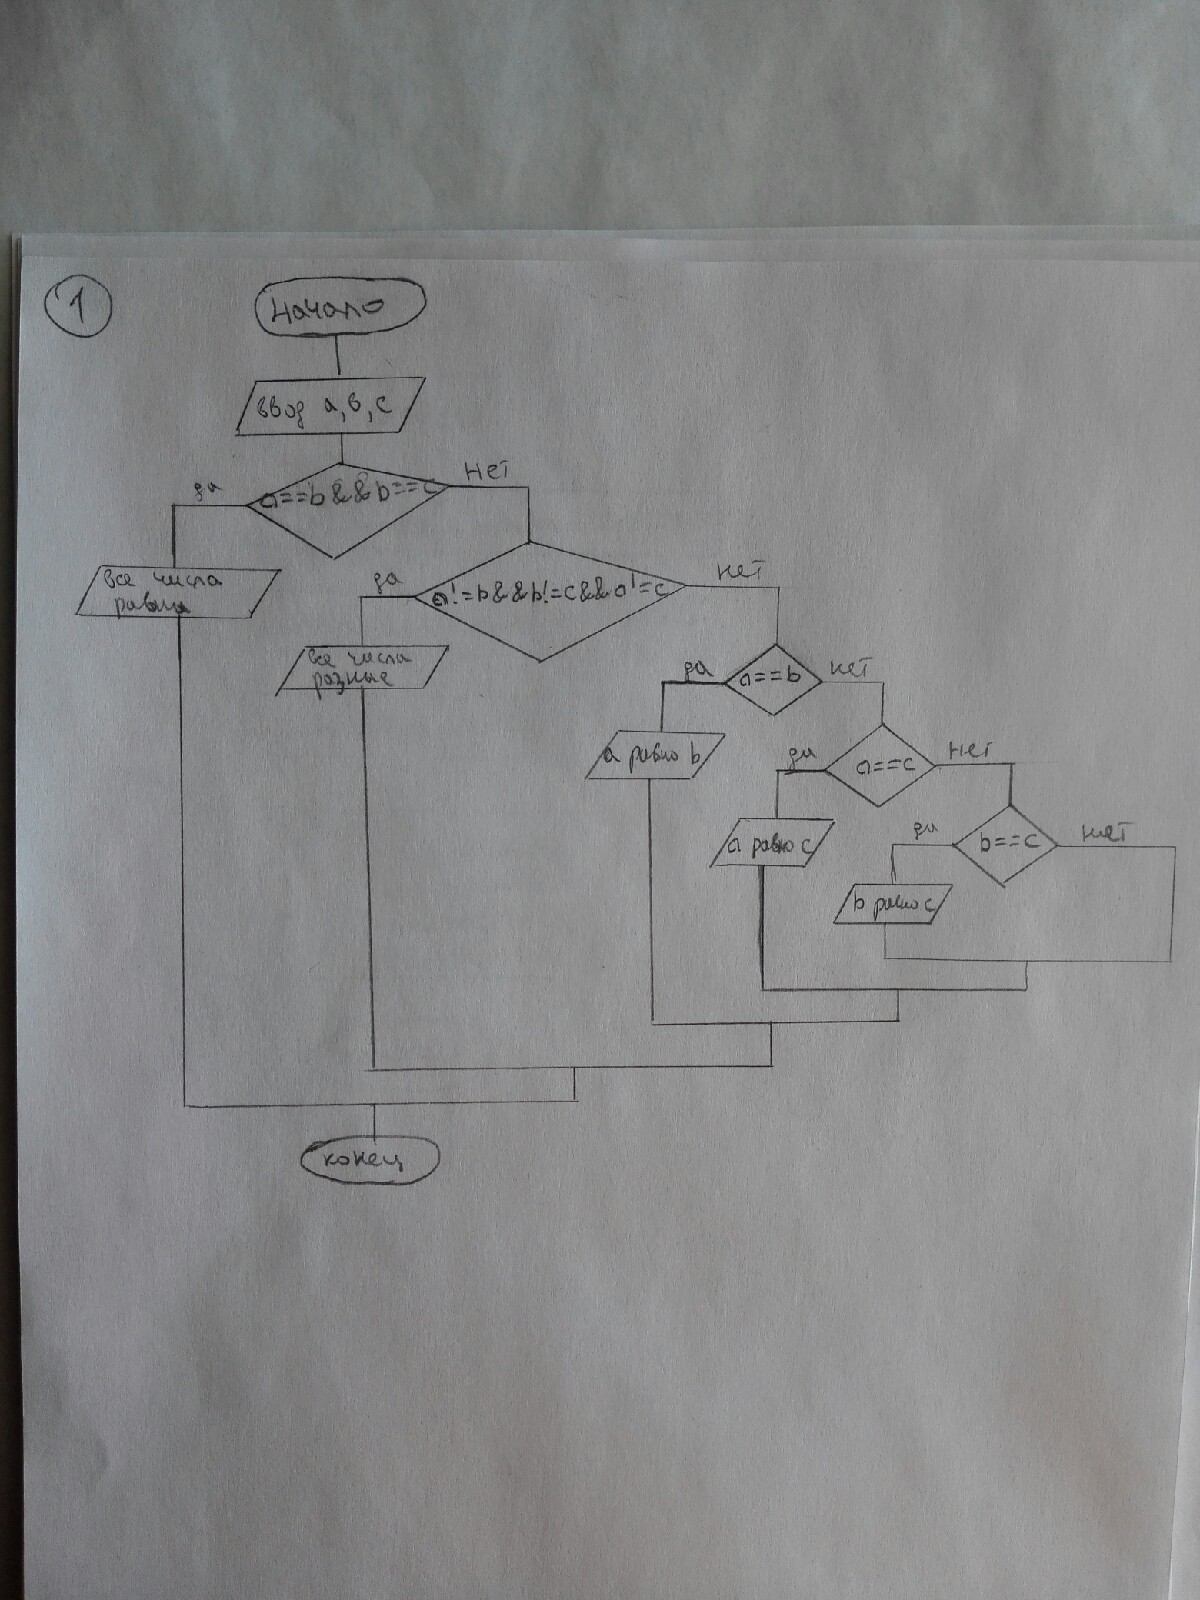 1
Начало
ввод a, b, c
да
a==b&&b==c
нет
все числа
равны
да
a!=b&&b!=c&&a!=c
нет
все числа
разные
да
a==b
нет
a равно b
да
a==c
нет
a равно c
да
b==c
нет
b равно c
конец